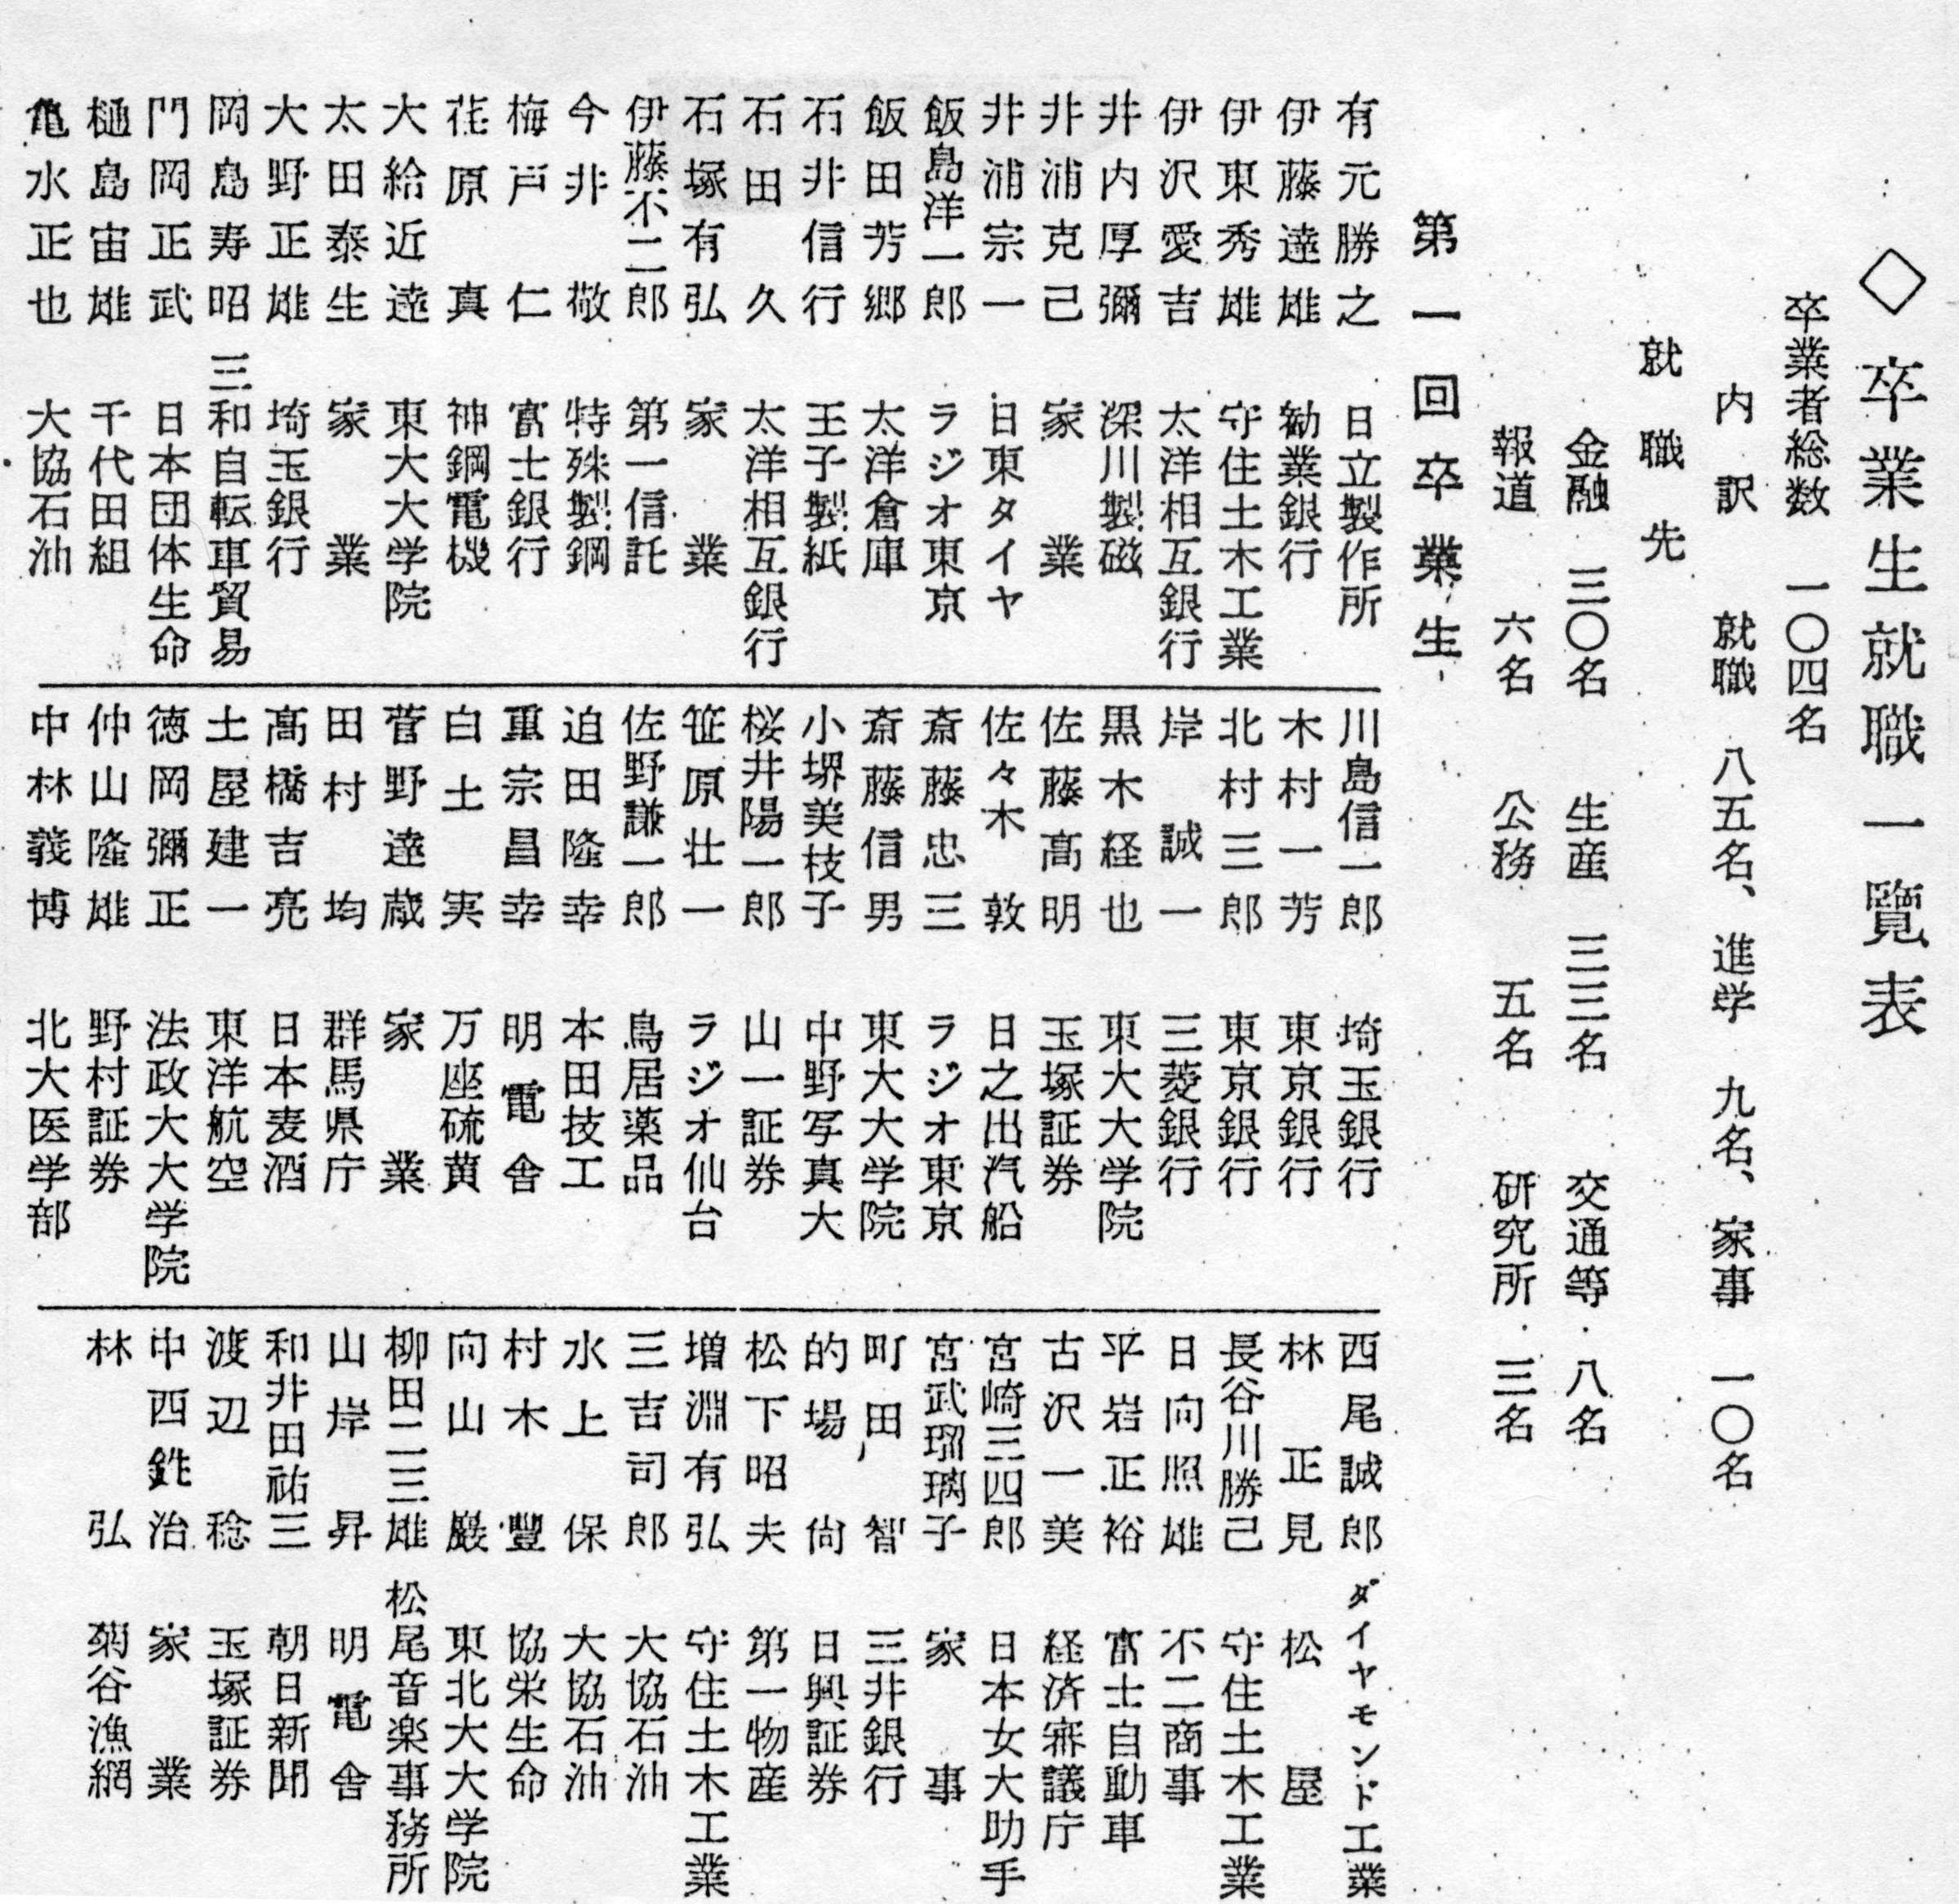 ◇卒業生就職一覧表
卒業者総数 一〇四名
内訳 就職 八五名、進学 九名、家事 一〇名
就職先
金融 三〇名 生産 三三名 交通等 八名
報道 六名 公務 五名 研究所 三名
第一回卒業生
有元勝之 日立製作所
伊藤達雄 勧業銀行
伊東秀雄 守住土木工業
伊沢愛吉 太洋相互銀行
井内厚彌 深川製磁
井浦克己 家業
井浦宗一 日東タイヤ
飯島洋一郎 ラジオ東京
飯田芳郷 太洋倉庫
石井信行 王子製紙
石田久 太洋相互銀行
石塚有弘 家業
伊藤不二郎 第一信託
今井敬 特殊製鋼
梅戸仁 富士銀行
荏原真 神鋼電機
大給近達 東大大学院
太田泰生 家業
大野正雄 埼玉銀行
岡島寿昭 三和自転車貿易
門岡正武 日本団体生命
樋島宙雄 千代田組
亀水正也 大協石油
川島信一郎 埼玉銀行
木村一芳 東京銀行
北村三郎 東京銀行
岸誠一 三菱銀行
黒木経也 東大大学院
佐藤高明 玉塚証券
佐々木敦 日之出汽船
斎藤忠三 ラジオ東京
斎藤信男 東大大学院
小堺美枝子 中野写真大
桜井陽一郎 山一証券
笹原壮一 ラジオ仙台
佐野謙一郎 鳥居薬品
迫田隆幸 本田技工
重宗昌幸 明電舎
白土実 万座硫黄
菅野達蔵 家業
田村均 群馬県庁
高橋吉亮 日本麦酒
土屋建一 東洋航空
徳岡彌正 法政大大学院
仲山隆雄 野村証券
中林義博 北大医学部
西尾誠郎 ダイヤモンド工業
林正見 松屋
長谷川勝己 守住土木工業
日向照雄 不二商事
平岩正裕 富士自動車
古沢一美 経済審議庁
宮崎三四郎 日本女大助手
宮武瑠璃子 家事
町田智 三井銀行
的場尚 日興証券
松下昭夫 第一物産
増淵有弘 守住土木工業
三吉司郎 大協石油
水上保 大協石油
村木豊 協栄生命
向山巌 東北大大学院
柳田二三雄 松尾音楽事務所
山岸昇 明電舎
和井田祐三 朝日新聞
渡辺稔 玉塚証券
中西銑治 家業
林弘 菊谷漁網